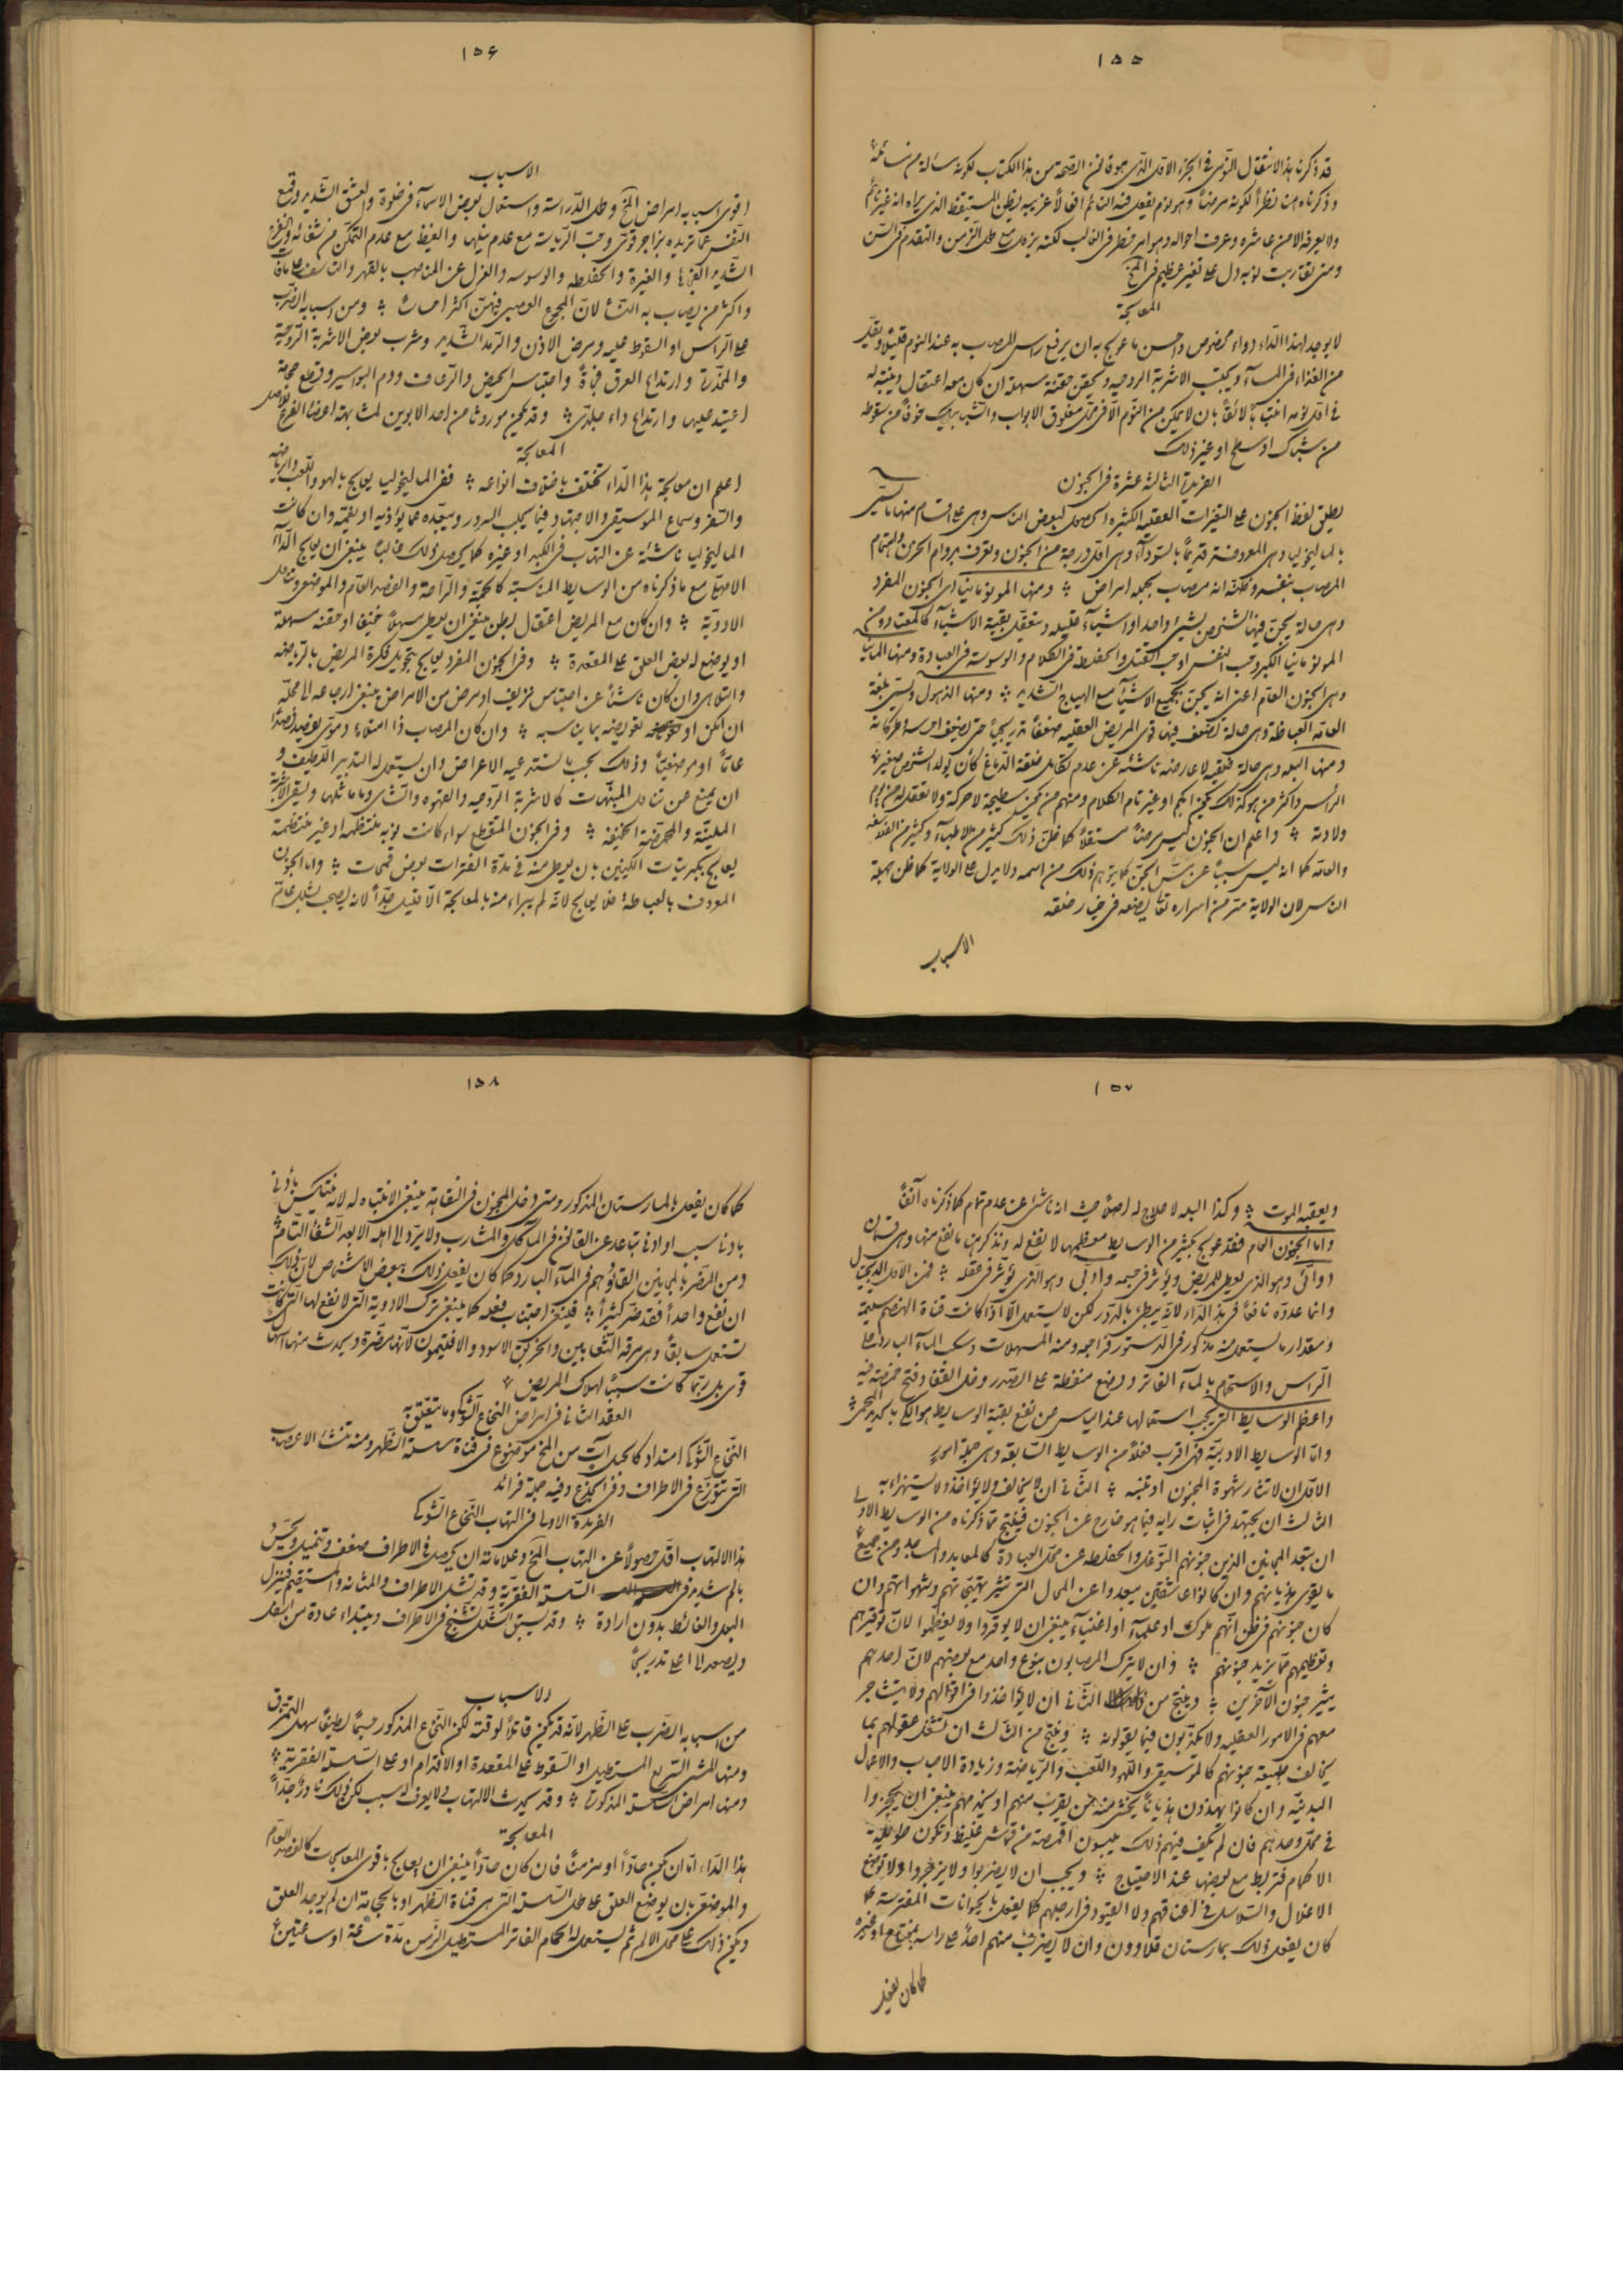 ١٥٥
قد ذكرنا هذا الانتقال النومي في الجزء الاول الذي هو قانون الصحة من هذا الكتاب لكونه مسئلة من مسائله
وذكرناه هنا نظراً لكونه مرضاً وهو نوم يفعل فيه النائم افعالاً غريبة يظن المستيقظ الذي يراه انه غير نائم
ولا يعرفه الا من عاشره وعرف احواله وهو امر خطر في الغالب لكنه يزول مع طول الزمن والتقدم في السن
ومتى تقاربت نوبه دل على تغير عظيم في المخ
المعالجة
لا يوجد لهذا الداء دواء مخصوص واحسن ما عولج به ان يرفع راس المصاب به عند النوم قليلاً ويقلل
من الغذاء في المسآء ويجتنب الاشربة الروحيه ويحقن حقنة مسهلة ان كان معه اعتقال وينتبه له
في اول نومه انتباهاً لائقاً بان لا يمكن من النوم الا في محل مغلوق الابواب والشبابيك خوفاً من سقوطه
من شباك او سطح او غير ذلك
الفريدة الثالثة عشرة في الجنون
يطلق لفظ الجنون على التغيرات العقلية الكثيرة الحصول لبعض الناس وهي على اقسام منها ما تسمى
بالماليخوليا وهي المعروفة قديماً بالسودآء وهي اول درجة من الجنون وتعرف بدوام الحزن واهتمام
المصاب بنفسه وظنه انه مصاب بجملة امراض ؞ ومنها المونومانيا اي الجنون المفرد
وهي حالة يجن فيها الشخص بشئ واحد او اشياء قليله ويتعقل بقية الاشياء كالمعتاد ومن
المونومانيا الكبر وحب النفس او حب القتل والحفلطة في الكلام والوسوسة في العبادة ومنها المانيا
وهي الجنون العام اعني انه يجن بجميع الاشيآء مع الهياج الشديد ؞ ومنها الذهول ويسمى بلغة
العامة العباطة وهي حالة تضعف فيها قوى المريض العقلية ضعفاً تدريجياً حتى يضعف احساسه وحركاته
ومنها البله وهي حالة خلقية لا عارضه ناشئه عن عدم تكامل خلقة الدماغ كأن يولد الشخص صغير
الرأس واكثر من هو كذلك يكون ابكم او غير تام الكلام ومنهم من يكون سطيحة لا حركة ولا تعقل له من يوم
ولادته ؞ واعلم ان الجنون ليس مرضاً مستقلاً كما ظن ذلك كثير من الاطباء وكثير من الفلاسفه
والعامه كما انه ليس سبباً عن مس الجن كما يتوهم ذلك من اسمه ولا يدل على الولاية كما ظن جهلة
الناس لان الولاية سر من اسراره تعالى يضعه في خيار خلقه
الاسباب
١٥٦
الاسباب
اقوى اسبابه امراض المخ وطول الدراسة واستعمال بعض الاسمآء في خلوة والعشق الشديد وقمع
النفس عما تريده بزاجر قوى وحب الرياسة مع عدم نيلها والغيظ مع عدم التمكن من شفائه والفزع
الشديد الفجائي والغيرة والحفلطه والوسوسه والعزل عن المناصب بالقهر والتاسف على ما فات
واكثر من يصاب به النسآء لان المجموع العصبي فيهن اكثر احساسا ؞ ومن اسبابه الضرب
على الراس او السقوط عليه ومرض الاذن والرمد الشديد وشرب بعض الاشربة الروحية
والمخدرات وارتداع العرق فجأة واحتباس الحيض والرعاف ودم البواسير وقطع حجامة
اعتيد عليها وارتداع داء جلدي ؞ وقد يكون موروثا من احد الابوين لمشابهته اعضا الفرع للاصل
المعالجة
اعلم ان معالجة هذا الداء تختلف باختلاف انواعه ؞ ففي الماليخوليا يعالج باللهو واللعب والرياضه
والسفر وسماع الموسيقى والاجتهاد فيما يجلب السرور ويبعده عما يؤذيه او يغمه وان كانت
الماليخوليا ناشئة عن التهاب في الكبد او غيره كما يحصل ذلك غالباً ينبغي ان يعالج الداء
الاصلي مع ما ذكرناه من الوسايط المناسبة كالحمية والراحة والفصد العام والموضعي وتناول
الادوية ؞ وان كان مع المريض اعتقال بطن ينبغي ان يعطى مسهلاً خفيفا او حقنه مسهلة
او يوضع له بعض العلق على المقعدة ؞ وفي الجنون المفرد يعالج بتحويل فكرة المريض بالرياضه
والتلاهي وان كان ناشئاً عن احتباس نزيف او مرض من الامراض ينبغي ارجاعه الى محله
ان امكن او تعويضه بما يناسبه ؞ وان كان المصاب ذا امتلاء دموي يفصد فصداً
عاماً او موضعياً وذلك بحسب ما تستدعيه الاعراض وان يستعمل له التدبير اللطيف و
ان يمنع عن تناول المنبهات كالاشربة الروحيه والقهوه والشاي وما ماثلها ويسقى الاشربة
الملينة والمحمضة الخفيفه ؞ وفي الجنون المتقطع سواء كانت نوبه منتظمه او غير منتظمة
يعالج بكبريتات الكينين بان يعطى منه في مدة الفترات بعض قمحات ؞ واما الجنون
المعروف بالعباطة فلا يعالج لانه لم يبراء منه بالمعالجة الا قليل جداً لانه يصحب بشلل عام
١٥٧
ويعقبه الموت ؞ وكذا البله لا علاج له اصلاً حيث انه ناشئ عن عدم تمام كما ذكرناه آنفاً
واما الجنون العام فقد عولج بكثير من الوسايط معظمها لا نفع له ونذكر هنا ما نفع منها وهي قسمان
دوائي وهو الذي يعطى للمريض ويؤثر في جسمه وادبي وهو الذي يؤثر في عقله ؞ فمن الاول الديجيتال
وانما عدوه نافعاً في هذا الداء لانه يبطئ بالدور لكن لا يستعمل الا اذا كانت قناة الهضم سليمة
ومقدار ما يستعمل منه مذكور في الدستور فراجعه ومنه المسهلات وسكب المآء البارد على
الراس والاستحمام بالمآء الفاتر ووضع منفطة على الصدر وخلف القفا وفتح حمصة فيه
واعظم الوسايط التي يجب استعمالها عند الياس من نفع بقية الوسايط هو الكي بالحديد المحمى ؞
واما الوسايط الادبية فهي اقرب فعلاً من الوسايط السابقة وهي جملة امور
الاول ان لا تثار شهوة المجنون او تنبه ؞ الثاني ان لا يخالف ولا يؤاخذ ولا يستهزاء به
الثالث ان يجتهد في اثبات رايه فيما هو خارج عن الجنون فينتج مما ذكرناه من الوسايط الاولى
ان يبعد المجانين الذين جنونهم التوغل والحفلطه عن محل العبادة كالمعابد والمساجد ومن جميع
ما يقوى هذيانهم وان كانوا عاشقين يبعدوا عن المحال التي تثير تهيجاتهم وشهواتهم وان
كان جنونهم في ظن انهم ملوك او علمآء او اغنياء ينبغي ان لا يوقروا ولا يعظموا لان توقيرهم
وتعظيمهم مما يزيد جنونهم ؞ وان لا يترك المصابون بنوع واحد مع بعضهم لان احدهم
يثير جنون الآخرين ؞ وينتج من الثاني ان لا يؤاخذوا في اقوالهم ولا يتشاجر
معهم في الامور العقلية ولا يكذبون فيما يقولونه ؞ وينتج من الثالث ان تشغل عقولهم بما
يخالف طبيعة جنونهم كالموسيقى واللهو واللعب والرياضة وزيادة الاحباب والاعمال
البدنيه وان كانوا يهذون هذياناً يخشى منه على من يقرب منهم او يخدمهم ينبغي ان يحجزوا
في محل وحدهم فان لم يكف فيهم ذلك يلبسون اقمصة من قماش غليظ وتكون طويلة
الاكمام فتربط مع بعضها عند الاحتياج ؞ ويجب ان لا يضربوا ولا يزجروا ولا توضع
الاغلال والسلاسل في اعناقهم ولا القيود في ارجلهم كما يفعل بالحيوانات المفترسة كما
كان يفعل ذلك بمارستان قلاوون وان لا يضرب منهم احد على راسه بمقتاع او غيره
كما كان يفعل
١٥٨
كما كان يفعل بالمارستان المذكور ومتى دخل المجنون في النقاهة ينبغي الانتباه له لانه ينتكس بأدنى
بادنى سبب او ادنى تباعد عن القانون في المآكل والمشارب ولا يرد الى اهله الا بعد الشفا التام
ومن المضر بالمجانين القاؤهم في المآء البارد كما كان يفعل ذلك ببعض الاشخاص لان ذلك
ان نفع واحداً فقد ضر كثيراً ؞ فينبغي اجتناب فعله كما ينبغي ترك الادوية التي لا نفع لها التي كانت
تستعمل سابقاً وهي مرقة الثعابين والخربق الاسود والافتيمون لانها مضرة ويحدث منها اسهال
قوى بل ربما كانت سبباً لهلاك المريض
العقد الثاني في امراض النخاع الشوكي وما يتعلق به
النخاع الشوكي امتداد كالحبل آت من المخ موضوع في قناة سلسة الظهر ومنه تنشئ الاعصاب
التي تتوزع في الاطراف وفي الجذع وفيه جملة فرائد
الفريدة الاولى في التهاب النخاع الشوكي
هذا الالتهاب اقل حصولاً عن التهاب المخ وعلاماته ان يحصل في الاطراف ضعف وتنميل ويحس
بالم شديد في السلسة الفقرية وقد تشل الاطراف والمثانه والمستقيم فينزل
البول والغائط بدون ارادة ؞ وقد يسبق الشلل تشنج في الاطراف ويبتداء عادة من اسفل
ويصعد الى اعلى تدريجاً
الاسباب
من اسبابه الضرب على الظهر لانه قد يكون قاتلاً لوقته لكن النخاع المذكور جسماً لطيفاً سهل التمزق
ومنها المشى السريع المستطيل او السقوط على المقعدة او الاقدام او على السلسة الفقرية ؞
ومنها امراض السلسة المذكورة ؞ وقد يحدث الالتهاب ولا يعرف له سبب لكن ذلك نادر جداً
المعالجة
هذا الداء اما ان يكون حاداً او مزمناً فان كان حاداً ينبغي ان يعالج باقوى المعالجات كالفصد العام
والموضعي بان يوضع العلق على طول السلسة التي هي قناة الظهر او بالحجامة ان لم يوجد العلق
ويكون ذلك على محل الالم ثم يستعمل له الحمام الفاتر المستطيل الزمن مدة ساعة او ساعتين